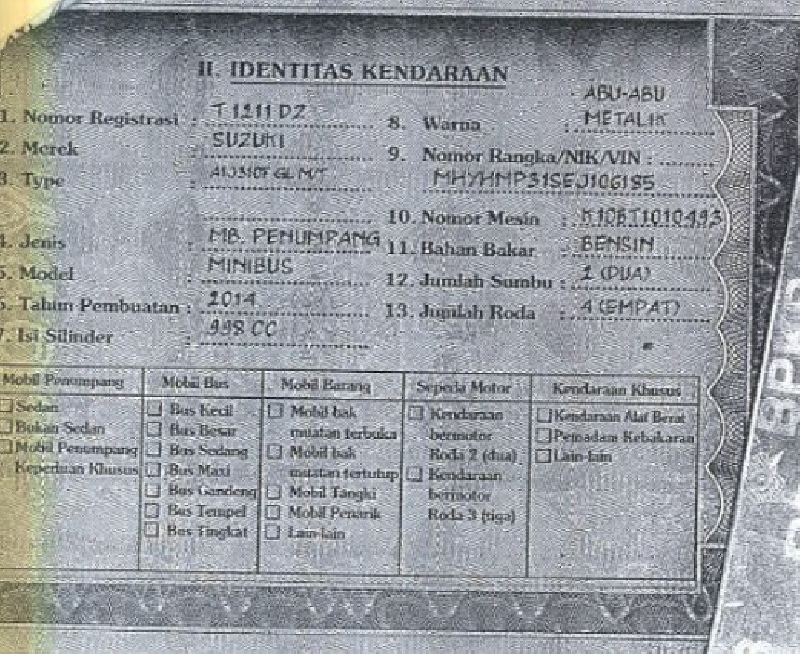 II. IDENTITAS KENDARAAN
1. Nomor Registrasi : T 1211 DZ
2. Merek : SUZUKI
3. Type : GL M/T
4. Jenis : MB. PENUMPANG
5. Model : MINIBUS
6. Tahun Pembuatan : 2014
7. Isi Silinder : 998 CC
8. Warna : ABU-ABU
METALIK
9. Nomor Rangka/NIK/VIN :
MHYHMP31SEJ106185
10. Nomor Mesin : K10BT1010493
11. Bahan Bakar : BENSIN
12. Jumlah Sumbu : 2 (DUA)
13. Jumlah Roda : 4 (EMPAT)
Mobil Penumpang
Sedan
Bukan Sedan
Mobil Penumpang
Keperluan Khusus
Mobil Bus
Bus Kecil
Bus Besar
Bus Sedang
Bus Maxi
Bus Gandeng
Bus Tempel
Bus Tingkat
Mobil Barang
Mobil bak
muatan terbuka
Mobil bak
muatan tertutup
Mobil Tangki
Mobil Penarik
Lain-lain
Sepeda Motor
Kendaraan
bermotor
Roda 2 (dua)
Kendaraan
bermotor
Roda 3 (tiga)
Kendaraan Khusus
Kendaraan Alat Berat
Pemadam Kebakaran
Lain-lain
BPKB